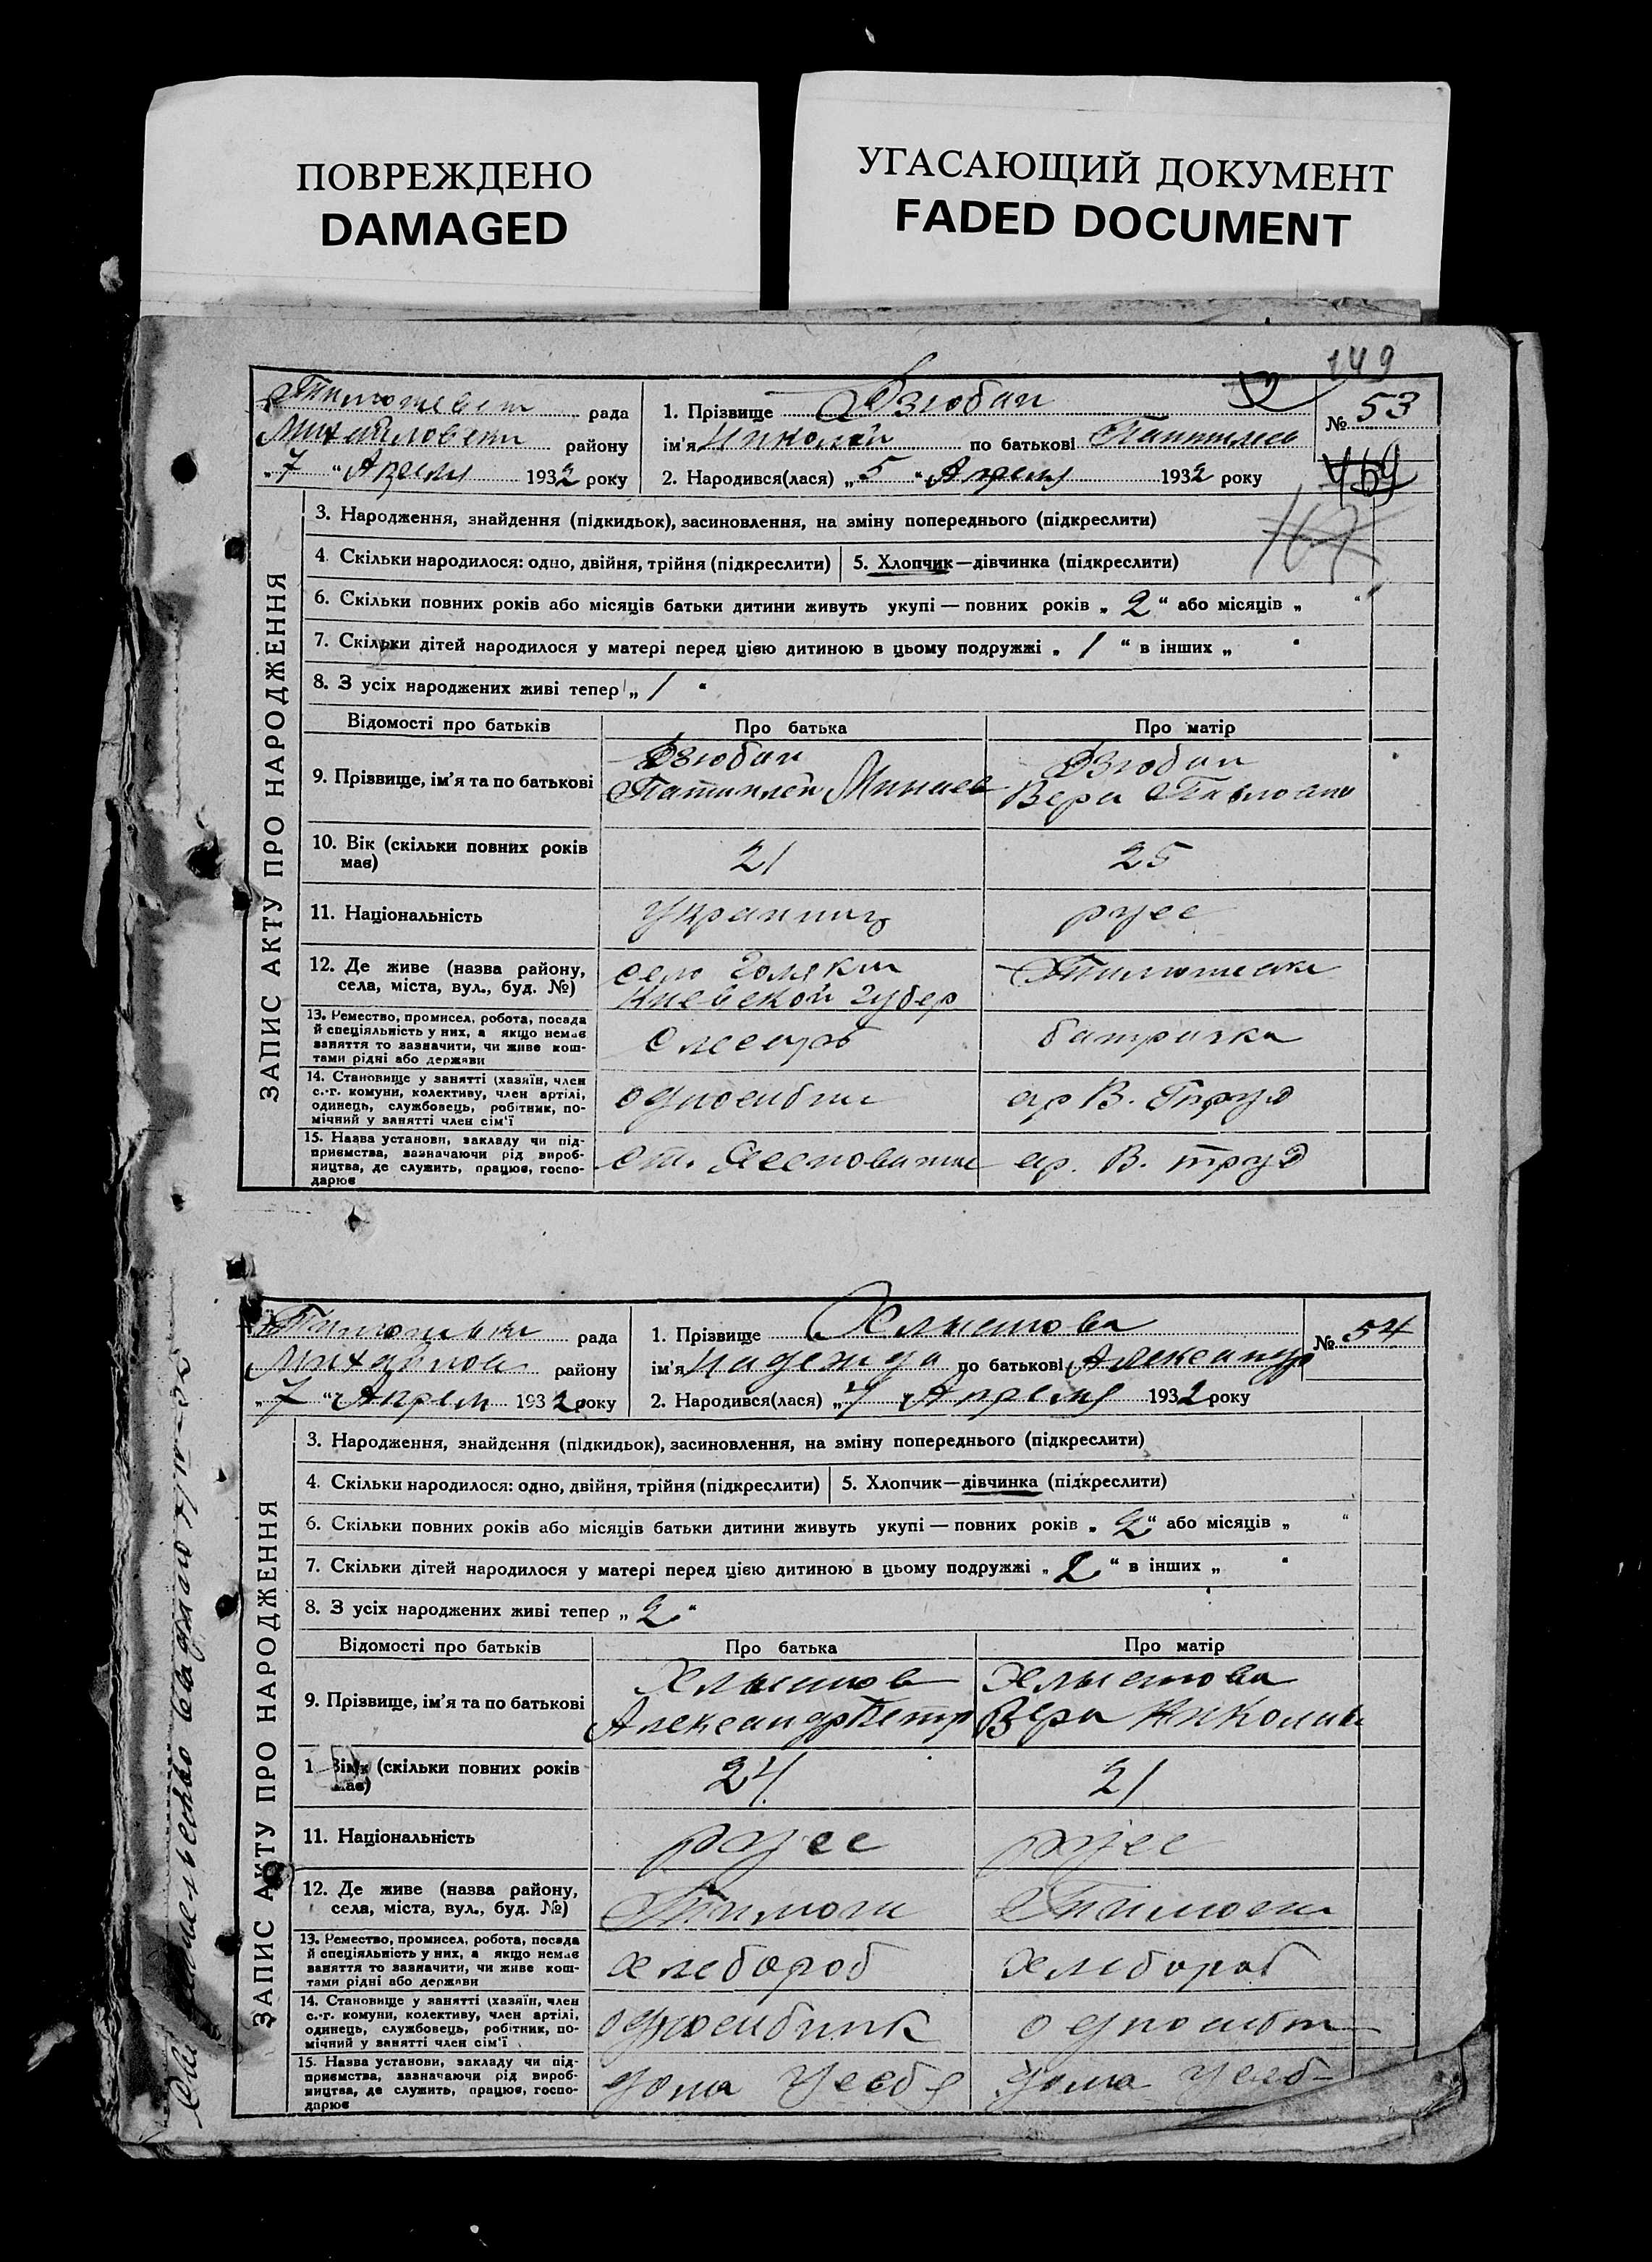 ПОВРЕЖДЕНО
DAMAGED
УГАСАЮЩИЙ ДОКУМЕНТ
FADED DOCUMENT
149
рада
району
„7“ Апреля 1932 року
1. Прізвище Дзюбан
ім'я Николай по батькові
2. Народився(лася) „5“ Апреля 1932 року
№ 53
469
167
ЗАПИС АКТУ ПРО НАРОДЖЕННЯ
3. Народження, знайдення (підкидьок), засиновлення, на зміну попереднього (підкреслити)
4. Скільки народилося: одно, двійня, трійня (підкреслити) 5. Хлопчик—дівчинка (підкреслити)
6. Скільки повних років або місяців батьки дитини живуть укупі — повних років „2“ або місяців „ “
7. Скільки дітей народилося у матері перед цією дитиною в цьому подружжі „1“ в інших „ “
8. З усіх народжених живі тепер „1“
Відомості про батьків Про батька Про матір
9. Прізвище, ім'я та по батькові
Дзюбан Дзюбан
Вера
10. Вік (скільки повних років має) 21 25
11. Національність украинц русс
12. Де живе (назва району, села, міста, вул., буд. №)
село
Киевской губер
13. Ремество, промисел, робота, посада
й спеціяльність у них, а якщо немає
заняття то зазначити, чи живе кош-
тами рідні або держави
слесарь батрачка
14. Становище у занятті (хазяїн, член
с.-г. комуни, колективу, член артілі,
одинець, службовець, робітник, по-
мічний у занятті член сім'ї
ар В. Труд
15. Назва установи, закладу чи під-
приємства, зазначаючи рід вироб-
ництва, де служить, працює, госпо-
дарює
ст. ар. В. труд
рада
району
„7“ Апрел 1932 року
1. Прізвище Хлыстова
ім'я Надежда по батькові Александр
2. Народився(лася) „4 Апреля 1932 року
№ 54
ЗАПИС АКТУ ПРО НАРОДЖЕННЯ
3. Народження, знайдення (підкидьок), засиновлення, на зміну попереднього (підкреслити)
4. Скільки народилося: одно, двійня, трійня (підкреслити) 5. Хлопчик—дівчинка (підкреслити)
6. Скільки повних років або місяців батьки дитини живуть укупі — повних років „2“ або місяців „ “
7. Скільки дітей народилося у матері перед цією дитиною в цьому подружжі „2“ в інших „ “
8. З усіх народжених живі тепер „2“
Відомості про батьків Про батька Про матір
9. Прізвище, ім'я та по батькові
Хлыстов Хлыстова
Александр Петр Вера Николав
(скільки повних років 24 21
11. Національність русс русс
12. Де живе (назва району,
села, міста, вул., буд. №)
13. Ремество, промисел, робота, посада
й спеціяльність у них, а якщо немає
заняття то зазначити, чи живе кош-
тами рідні або держави
хлебороб хлебороб
14. Становище у занятті (хазяїн, член
с.-г. комуни, колективу, член артілі,
одинець, службовець, робітник, по-
мічний у занятті член сім'ї
одноосибник
15. Назва установи, закладу чи під-
приємства, зазначаючи рід вироб-
ництва, де служить, працює, госпо-
дарює
дома дома